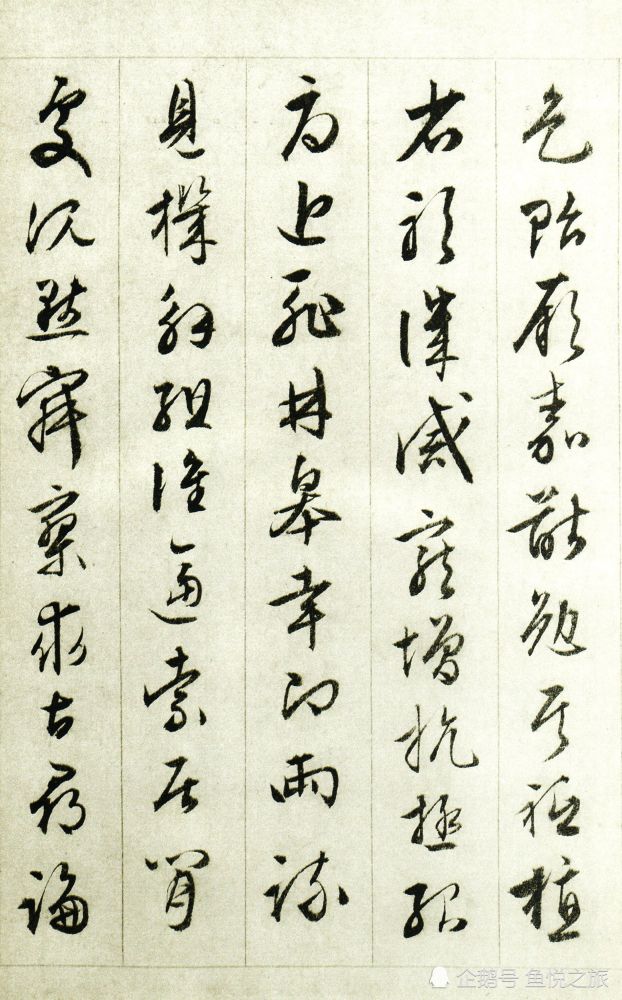 色貽厥嘉猷勉其祗植
省躬譏誡寵增抗極殆
辱近恥林皋幸即兩疏
見機解組誰逼索居閒
處沉默寂寥求古尋論
企鹅号 鱼悦之旅